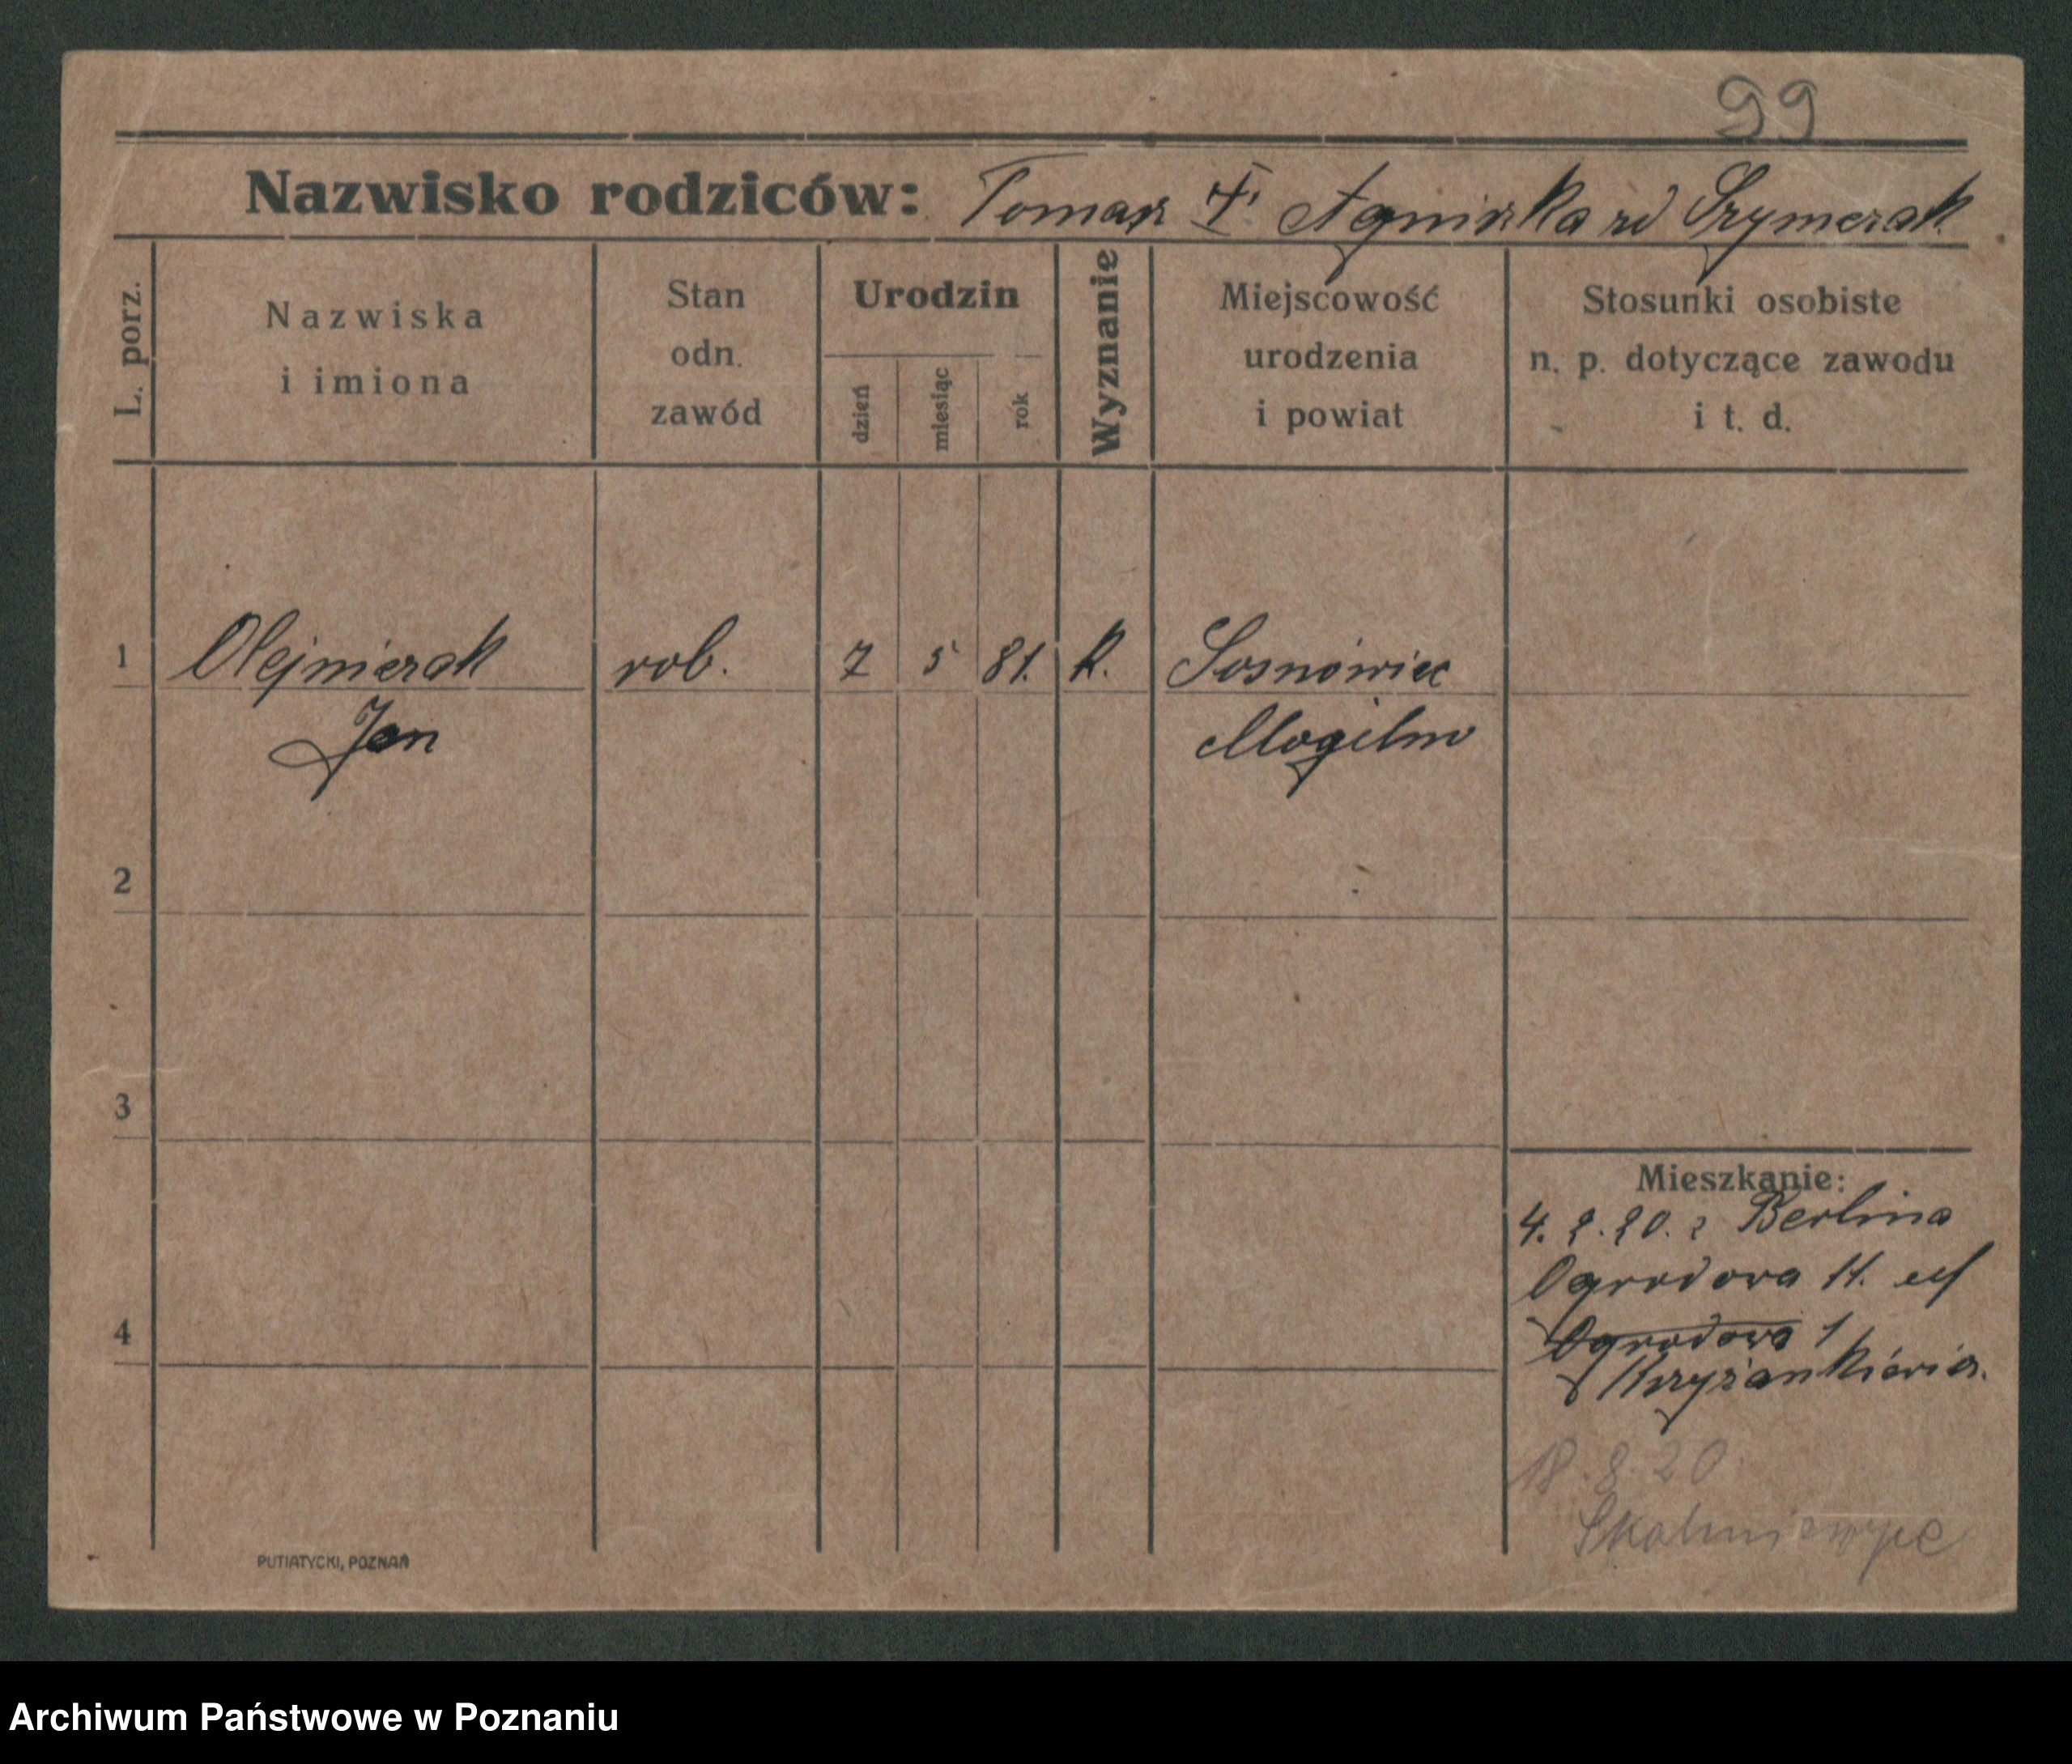 99
Nazwisko rodziców: Tomasz † Agnieszka zd Szymczak
L. porz.
Nazwiska
i imiona
Stan
odn.
zawód
Urodzin
dzień
miesiąc
rok
Wyznanie
Miejscowość
urodzenia
i powiat
Stosunki osobiste
n. p. dotyczące zawodu
i t. d.
1 Olejniczak rob. 7 5 81. k. Sosnowiec
Jan Mogilno
2
3
4
Mieszkanie:
4. 2. 20. z Berlina
Ogrodowa 11.
Ogrodowa 1
18. 8. 20
PUTIATYCKI, POZNAŃ
Archiwum Państwowe w Poznaniu